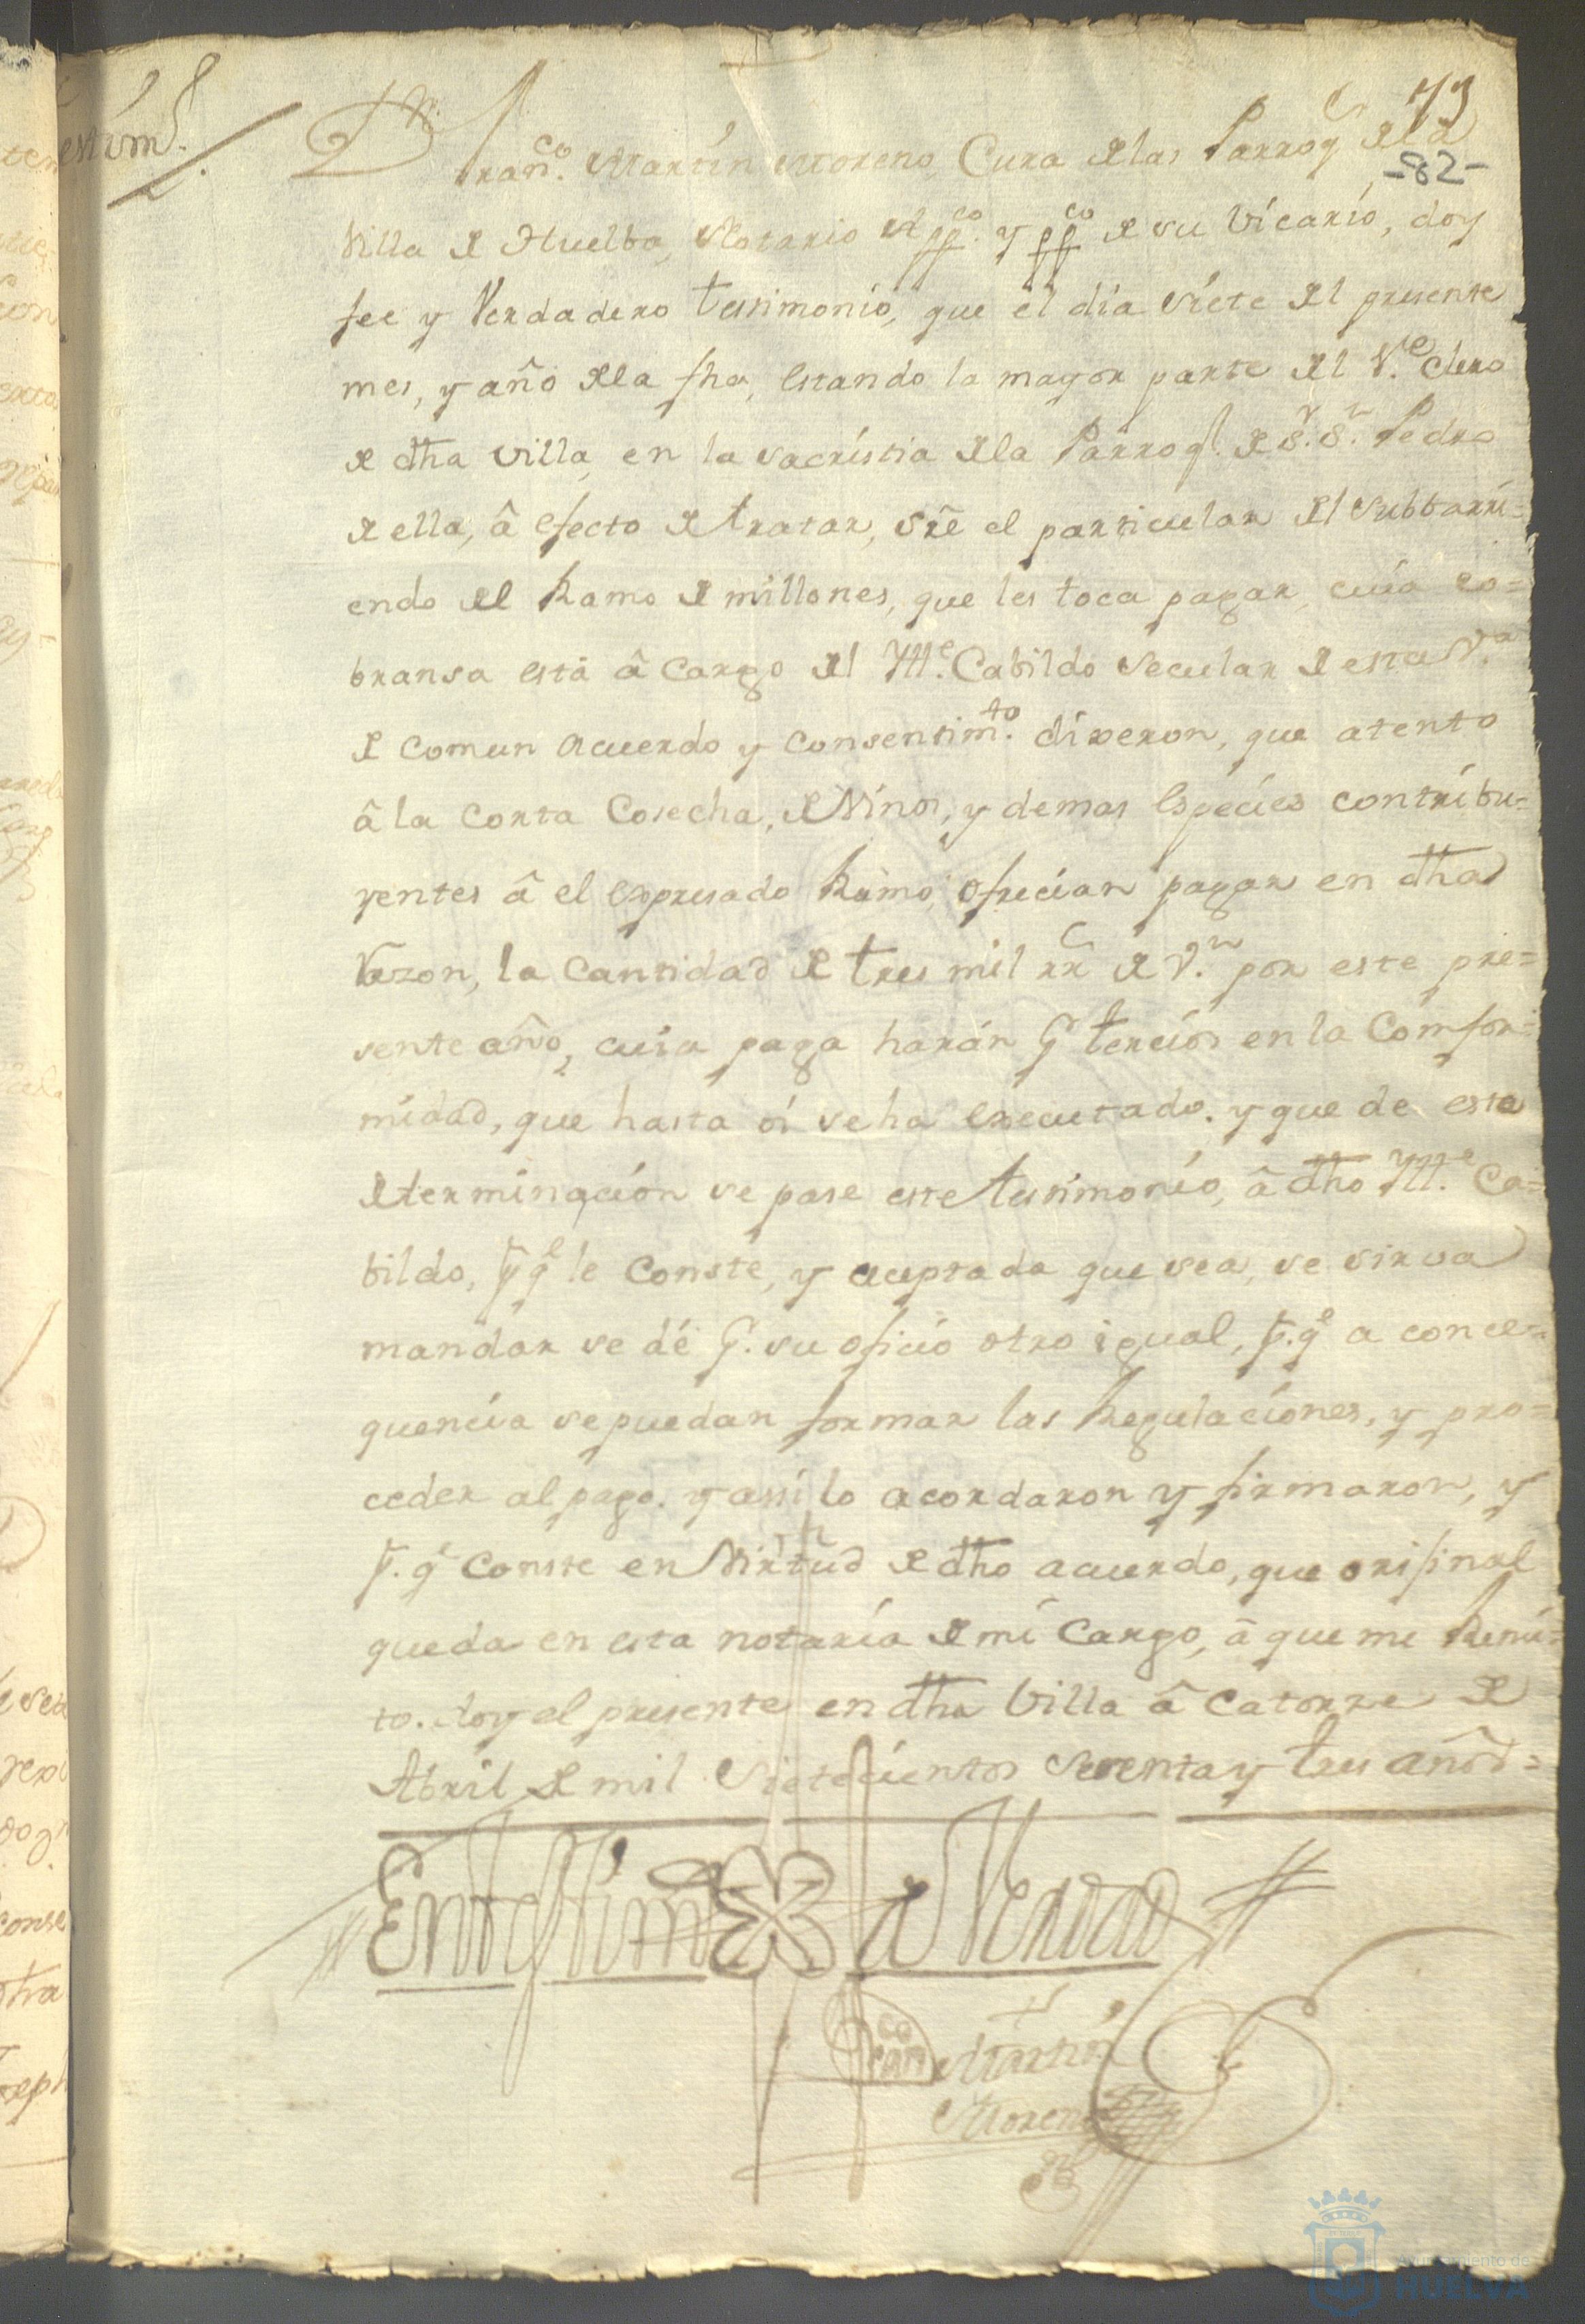 73
-82-
Testim.º
D.n Fran.co Martin Moreno, Cura de las Parroq.s de la
Villa de Huelba, Notario App.co y pp.co de su Vicario, doy
fee y Verdadero testimonio, que el dia siete del presente
mes, y año de la fha, estando la mayor parte del V.e Clero
de dha villa, en la sacristia de la Parroq.l de S.r S.n Pedro
de ella, â efecto de tratar, sre el particular del Subbarri=
endo del Ramo de millones, que les toca pagar, cuia co=
bransa está â cargo del Ill.e Cabildo secular de esta V.a
de comun acuerdo y consentim.to dixeron, que atento
â la corta Cosecha, de Vinos, y demas Especies contribu=
yentes â el expresado Ramo, ofrecian pagar en dha
Razon, la cantidad de tres mil rr.s de V.n por este pre=
sente año, cuia paga harán p.r tercios en la Comfor=
midad, que hasta oi se ha executado. y que de esta
determinación se pase este testimonio, â dho Ill.e Ca=
bildo, p.a q.e le Conste, y aceptada que sea, se sirva
mandar se dé p.r su oficio otro igual, p.a q.e a conce=
quencia se puedan formar las Regulaciones, y pro=
ceder al pago. y assi lo acordaron y firmaron, y
p.a q.e Conste en Virtud de dho acuerdo, que orijinal
queda en esta notaría de mi Cargo, â que me Remi=
to. doy el presente en dha Villa â Catorze de
Abril de mil Setecientos Setenta y tres años=
En testim.o de Verdad
Fran.co Martin
Moreno
Ayuntamiento de
HUELVA